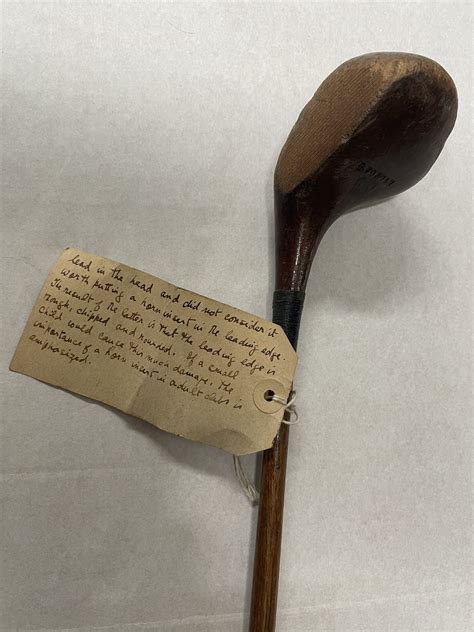 lead in the head and did not consider it
worth putting a horn insert in the leading edge.
The result of the latter is that the leading edge is
rough, chipped and rounded. If a small
child could cause this much damage. The
importance of a horn insert in adult clubs is
emprosized.